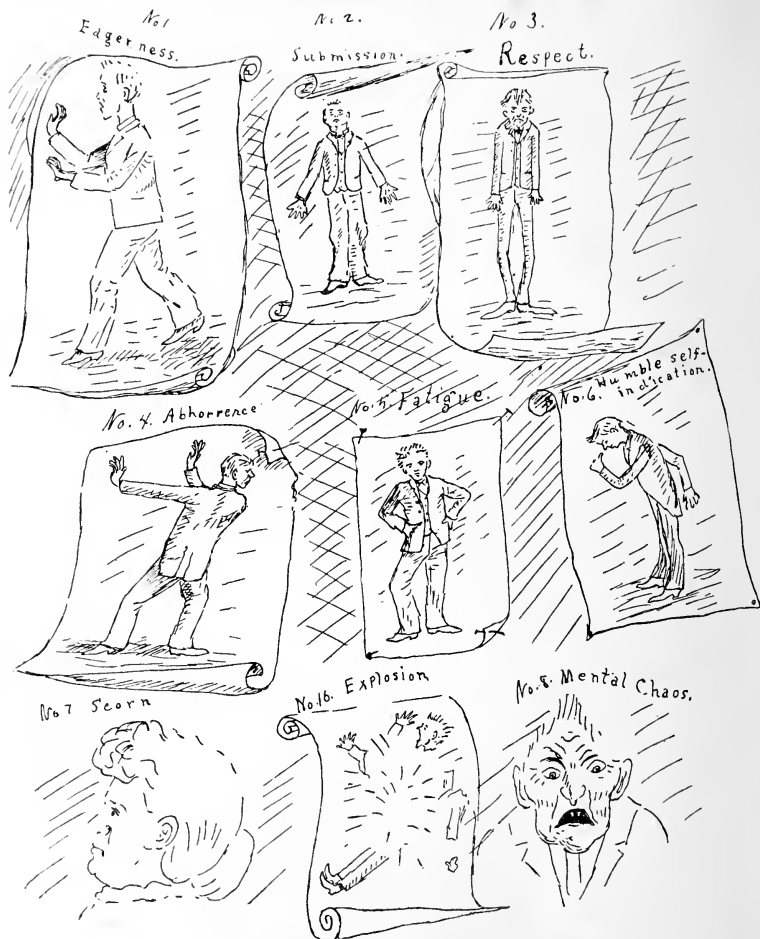 No 1
Edgerness.
No 2.
Submission.
No 3.
Respect.
No. 4. Abhorrence
No. 5. Fatigue.
No. 6. Humble self-
indication.
No 7 Scorn
No. 16. Explosion
No. 8. Mental Chaos.